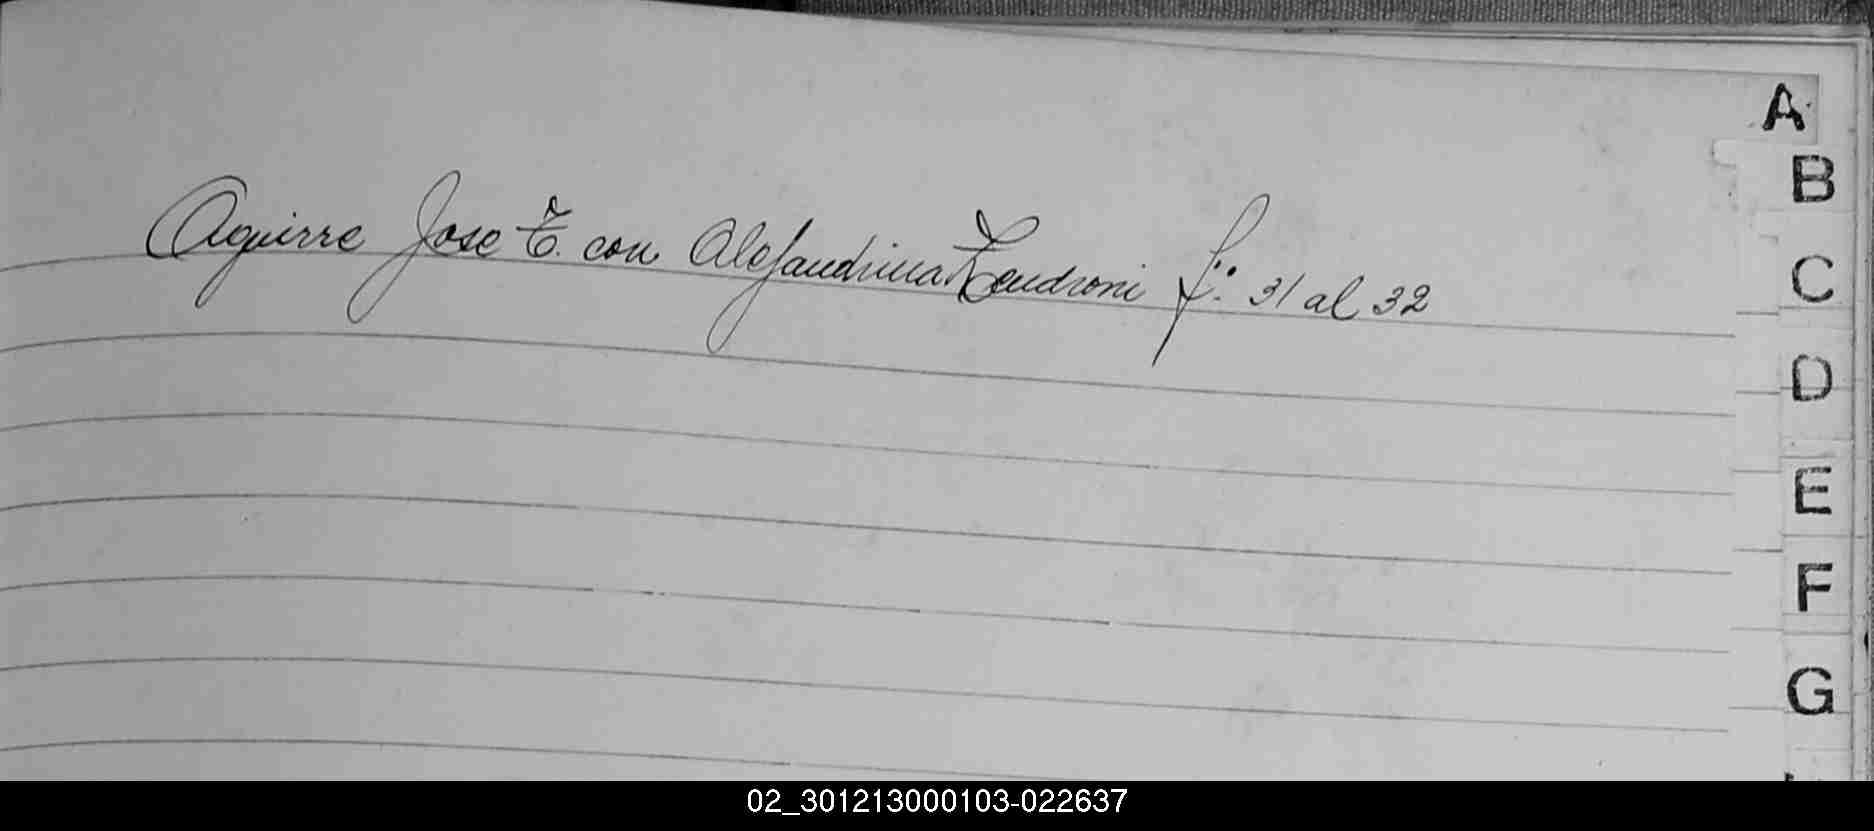 Aguirre Jose T. con Alejandrina Zendroni f.º 31 al 32
A
B
C
D
E
F
G
02_301213000103-022637